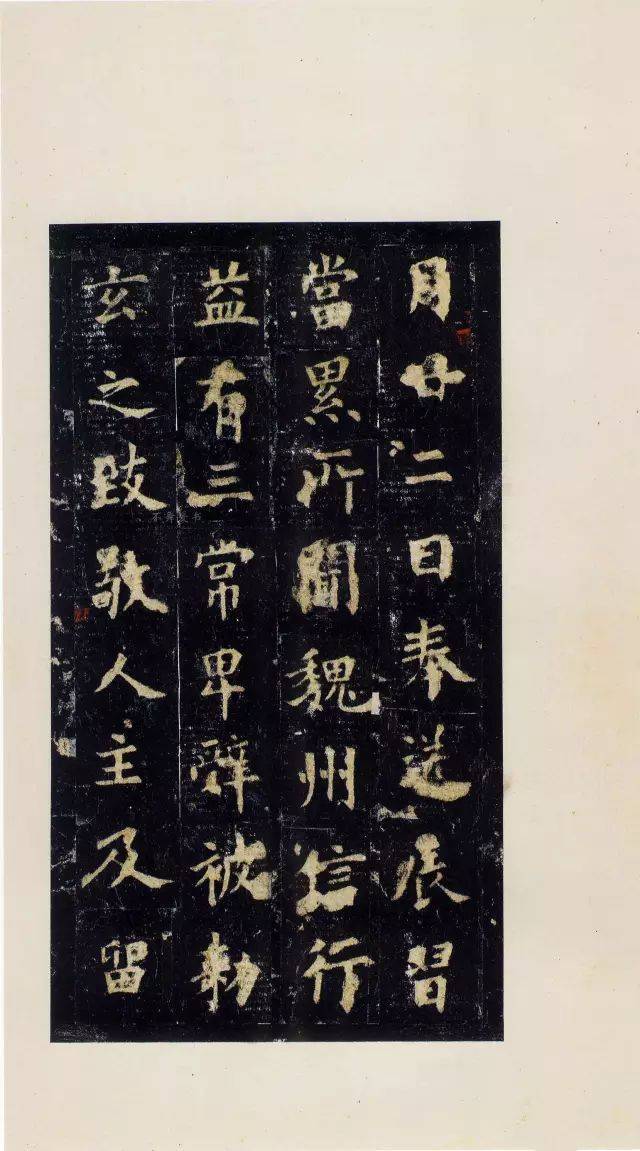 月廿二日奉送展習
當累所聞魏州信行
益有三常卑辞被勅
玄之致敬人主及留